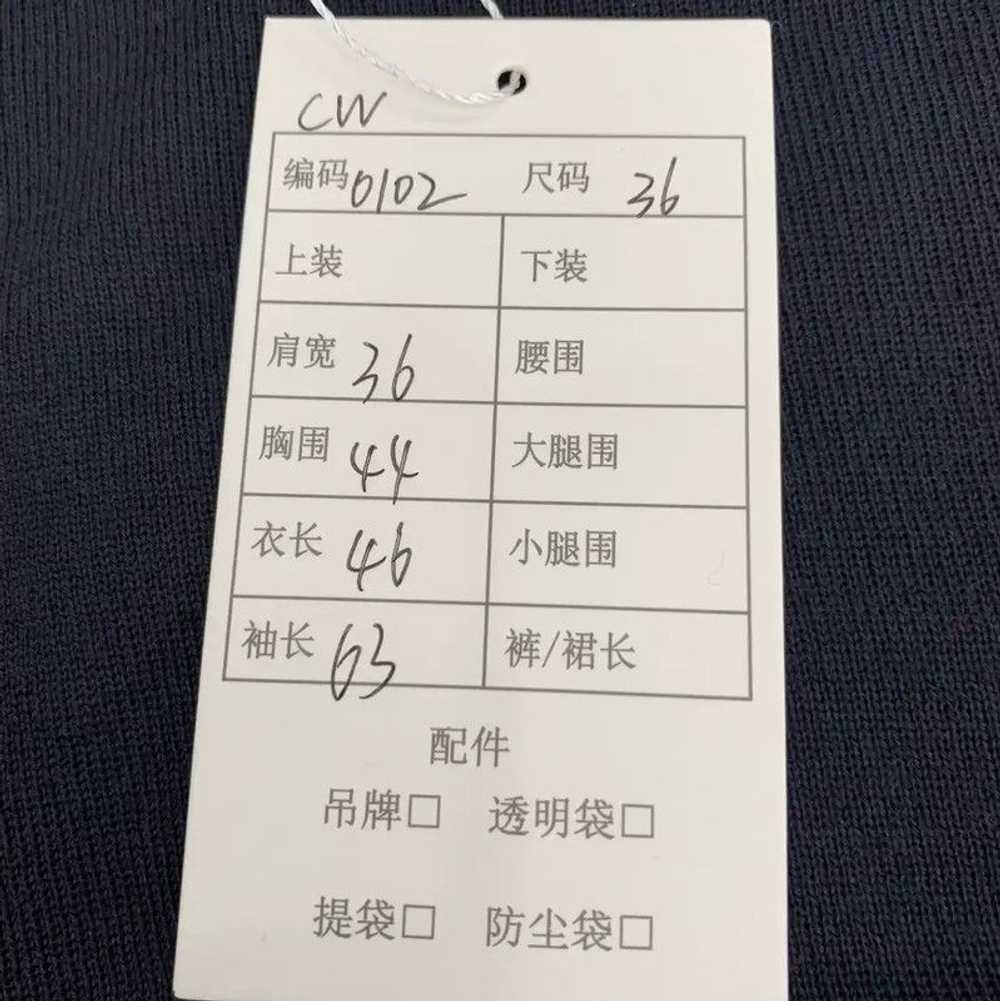 CW
编码0102 尺码 36
上装 下装
肩宽 36 腰围
胸围 44 大腿围
衣长 46 小腿围
袖长 63 裤/裙长
配件
吊牌□ 透明袋□
提袋□ 防尘袋□